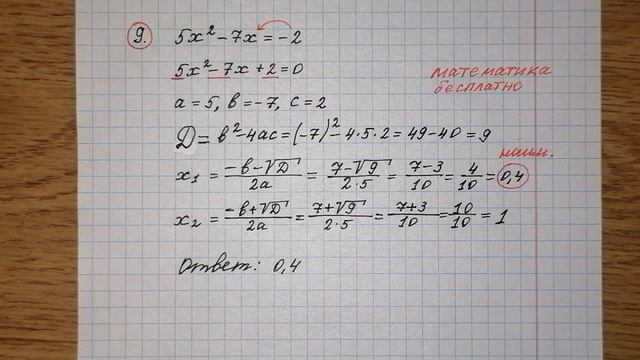 9. 5x² - 7x = -2
5x² - 7x + 2 = 0
математика
бесплатно
a = 5, в = -7, c = 2
D = в² - 4ac = (-7)² - 4·5·2 = 49 - 40 = 9
наим.
x₁ = (-в - √D)/(2a) = (7 - √9)/(2·5) = (7 - 3)/10 = 4/10 = 0,4
x₂ = (-в + √D)/(2a) = (7 + √9)/(2·5) = (7 + 3)/10 = 10/10 = 1
Ответ: 0,4